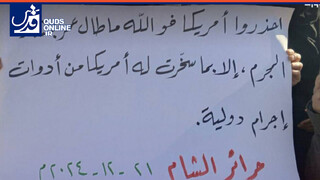 قدس
QUDS
ONLINE
.IR
احذروا أمريكا فو اللّه ما طال عمر
المجرم، إلا بما سخّرت له أمريكا من أدوات
إجرام دولية.
حرائر الشام
٢١-١٢-٢٠٢٤م